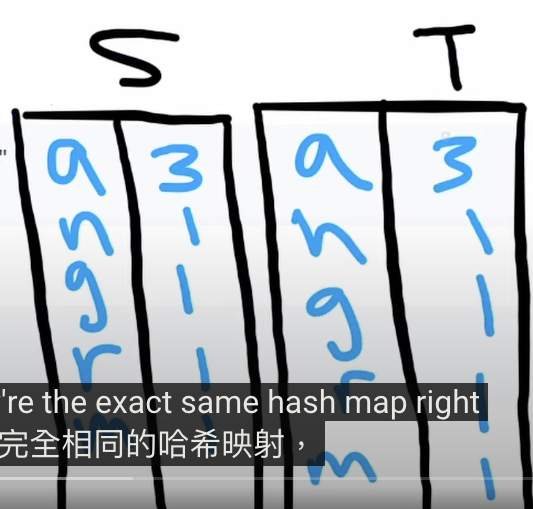 "
S T
a 3 a 3
n 1 n 1
g 1 g 1
r 1 r 1
m 1 m 1
're the exact same hash map right
完全相同的哈希映射，